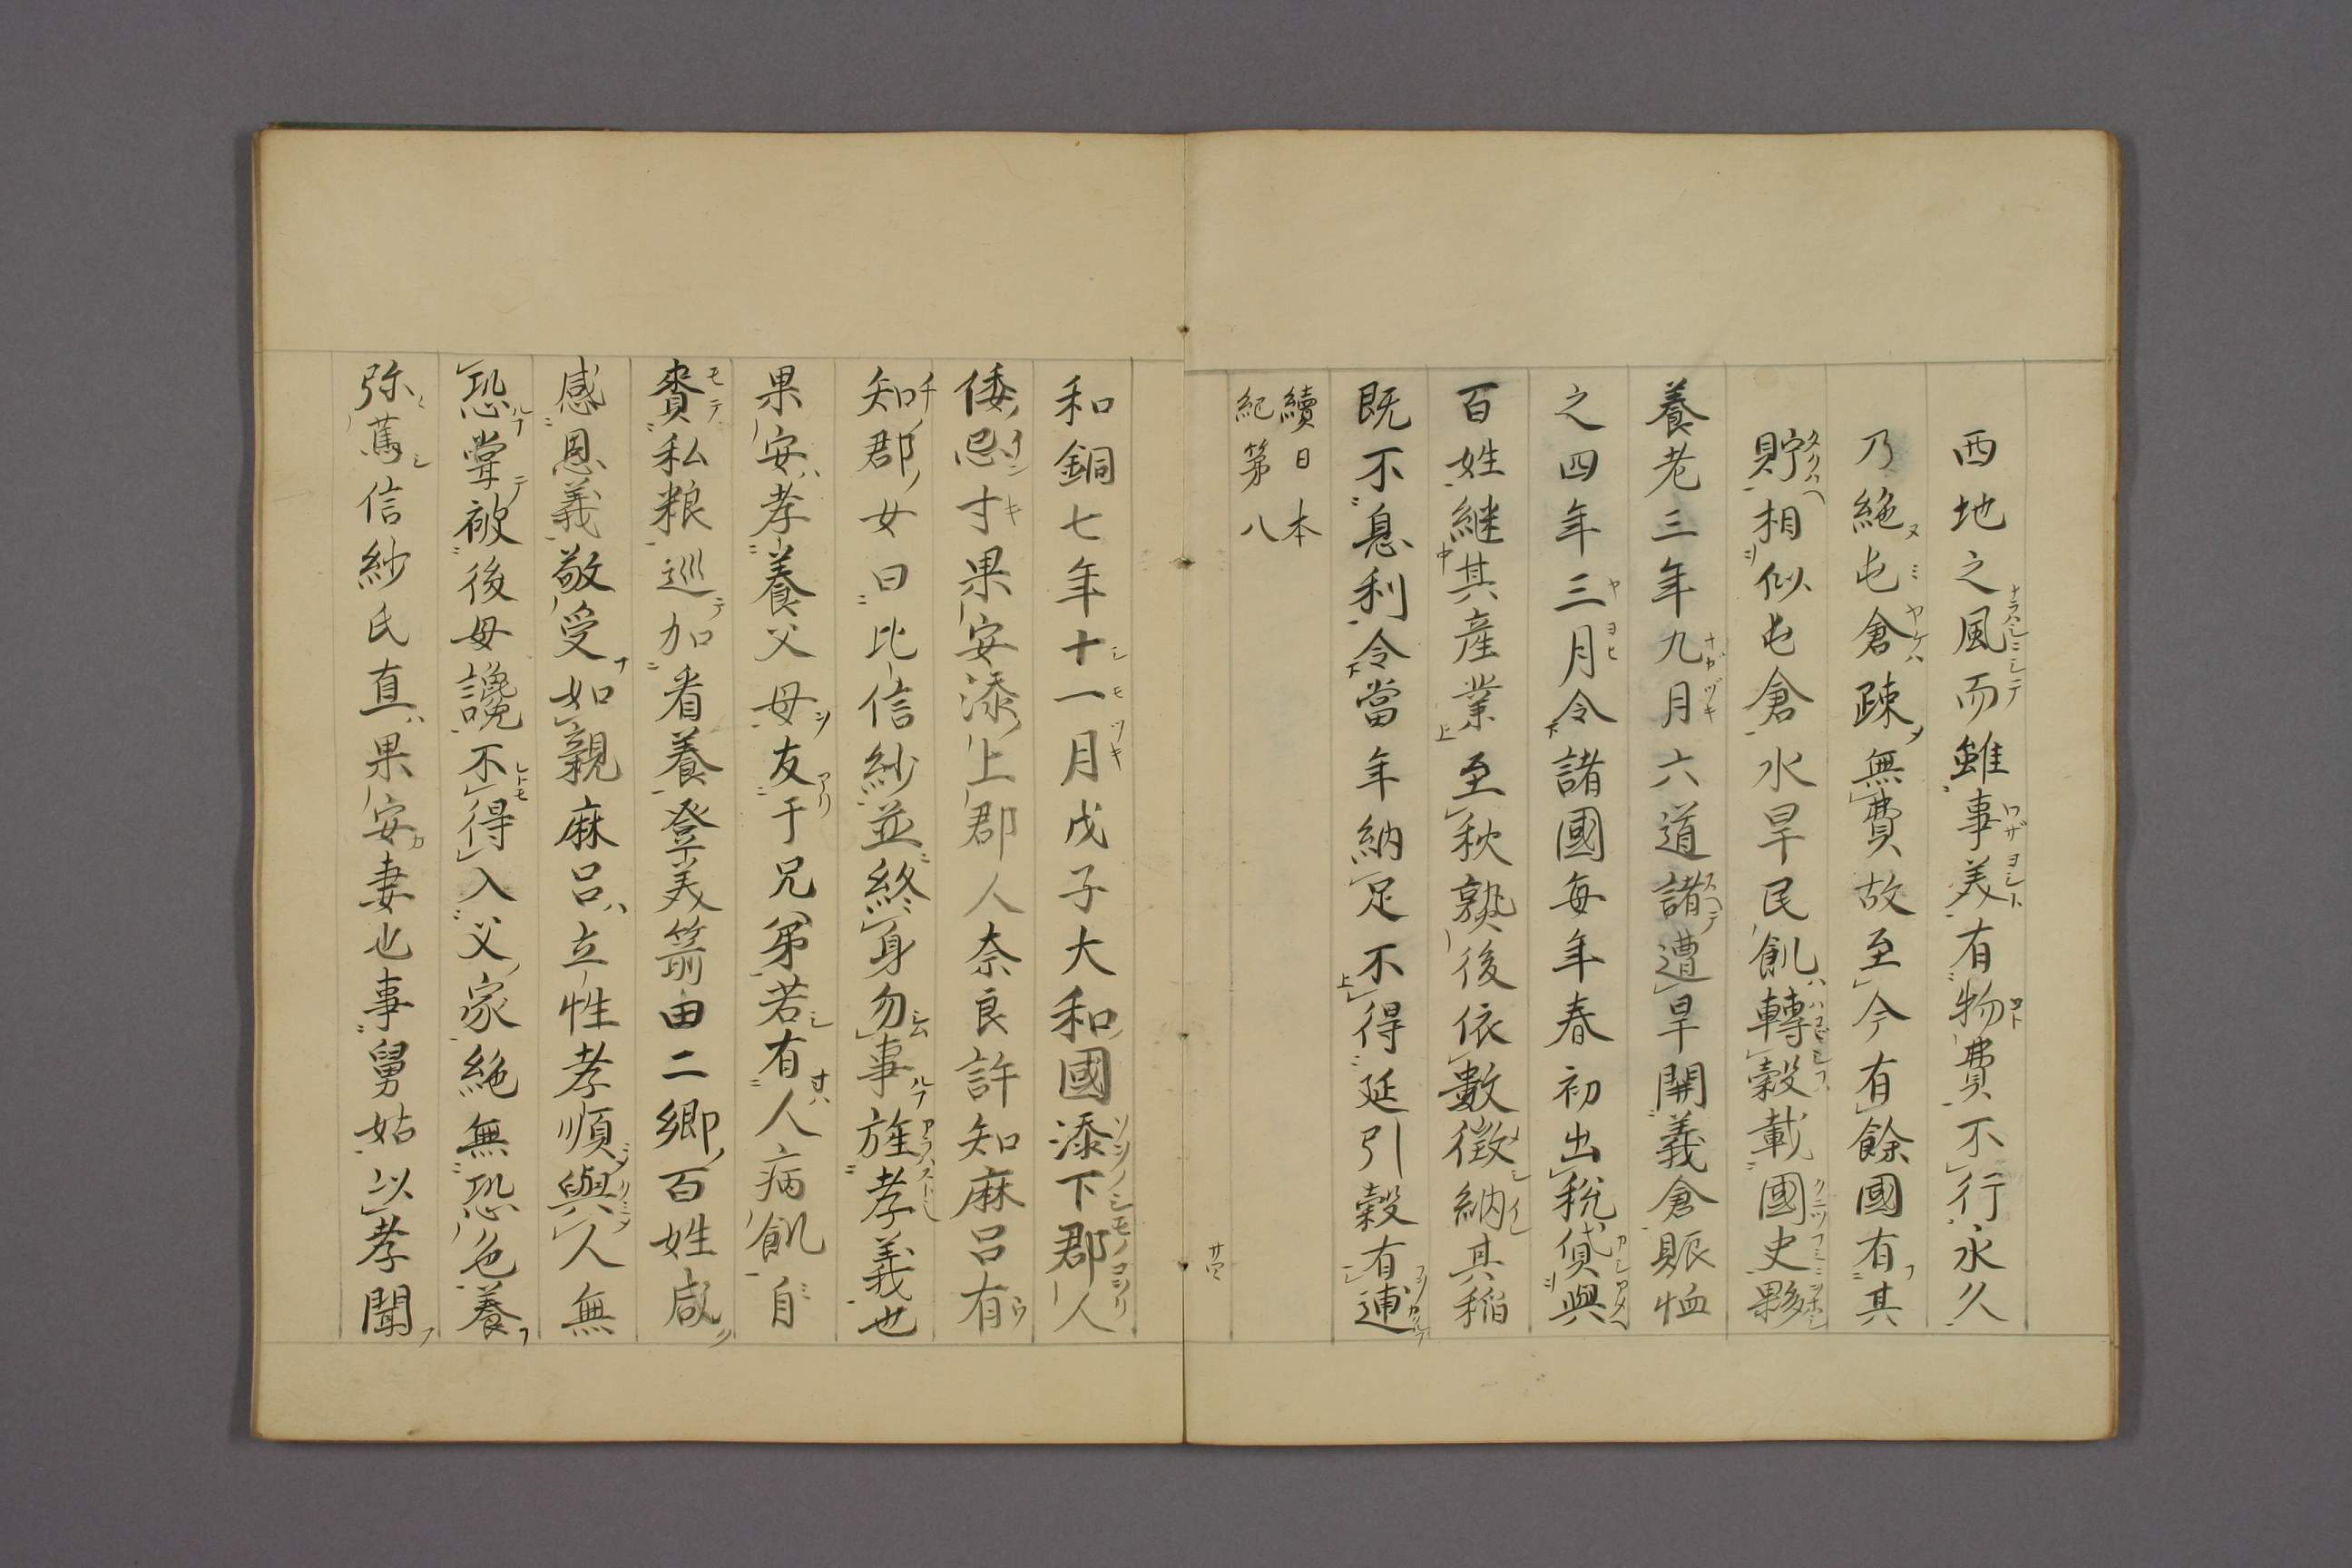 西地之風而雖事美有物費不行永久
乃絶屯倉疎無費故至今有餘國有其
貯相似屯倉水旱民飢轉穀載國史夥
養老三年九月六道諸遭旱開義倉賑恤
之四年三月令諸國毎年春初出税貸與
百姓継其産業至秋熟後依數徴納其稲
既不息利令當年納足不得延引穀有逋
續日本
紀第八
和銅七年十一月戊子大和國添下郡人
倭忌寸果安添上郡人奈良許知麻呂有
知郡女曰比信紗並終身勿事旌孝義也
果安孝養父母友于兄弟若有人病飢自
賷私粮巡加看養登美箭田二郷百姓咸
感恩義敬受如親麻呂立性孝順與人無
恐甞被後母讒不得入父家絶無恐色養
弥篤信紗氏直果安妻也事舅姑以孝聞